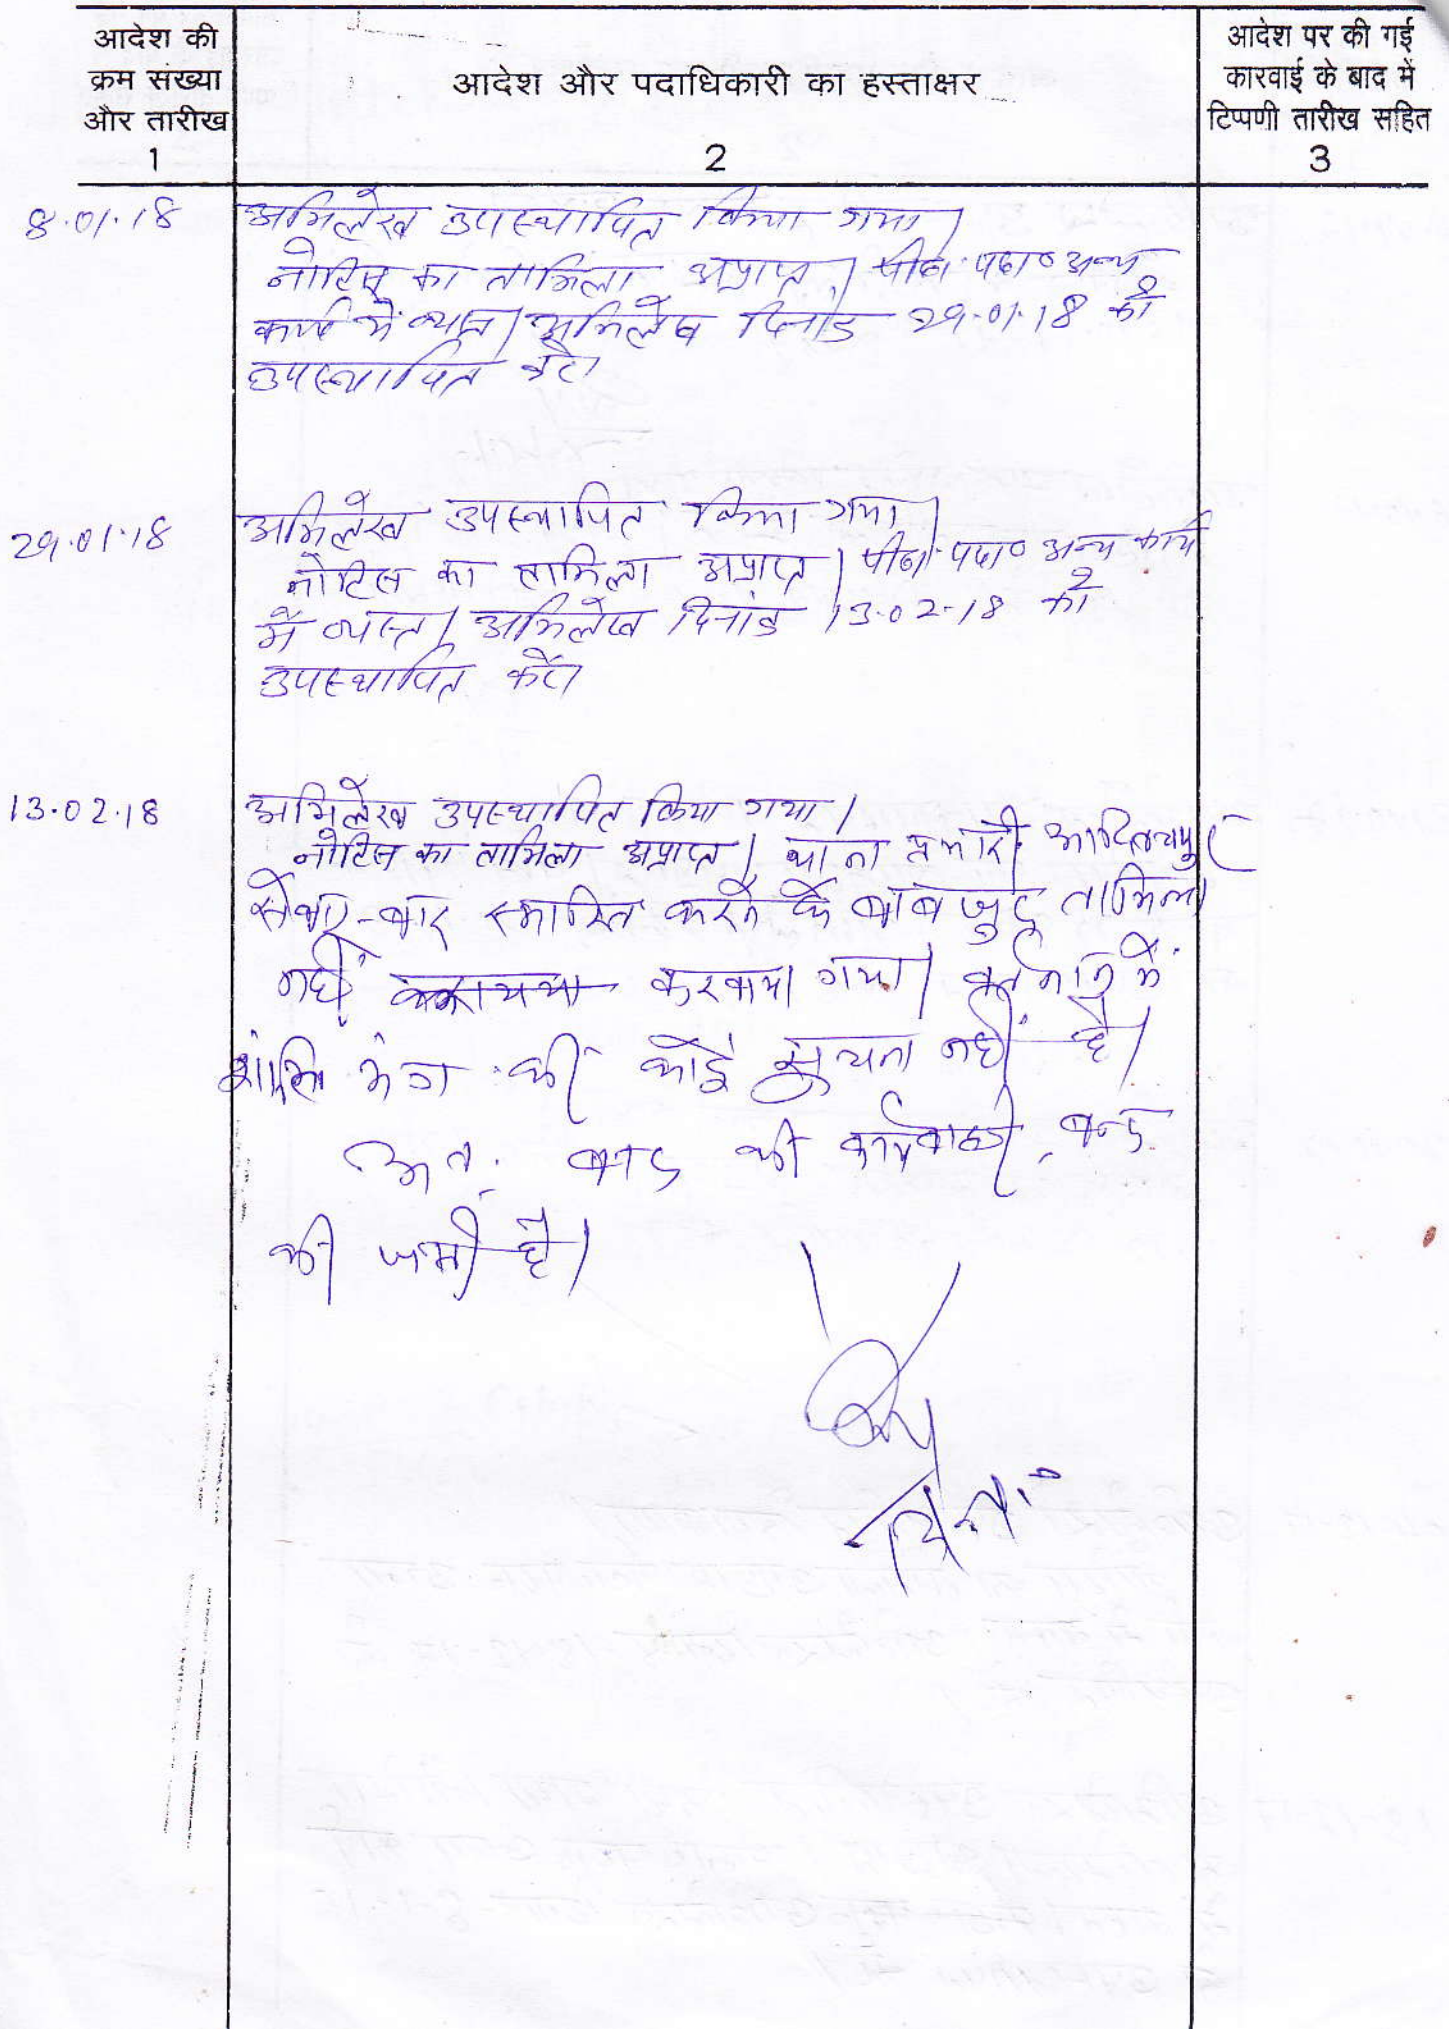 आदेश की
क्रम संख्या
और तारीख
1
आदेश और पदाधिकारी का हस्ताक्षर
2
आदेश पर की गई
कारवाई के बाद में
टिप्पणी तारीख सहित
3
8.01.18
अभिलेख उपस्थापित किया गया।
नोटिस का तामिला अप्राप्त। पीठा० पदा० अन्य
कार्य में व्यस्त। अभिलेख दिनांक 29.01.18 को
उपस्थापित करें।
29.01.18
अभिलेख उपस्थापित किया गया।
नोटिस का तामिला अप्राप्त। पीठा० पदा० अन्य कार्य
में व्यस्त। अभिलेख दिनांक 13.02.18 को
उपस्थापित करें।
13.02.18
अभिलेख उपस्थापित किया गया।
नोटिस का तामिला अप्राप्त। थाना प्रभारी आदित्यपुर
से बार-बार स्मारित करने के बावजुद तामिला
नहीं करवाया गया। वर्तमान में
शांति भंग की कोई सुचना नहीं है।
अतः वाद की कार्यवाही बन्द
की जाती है।